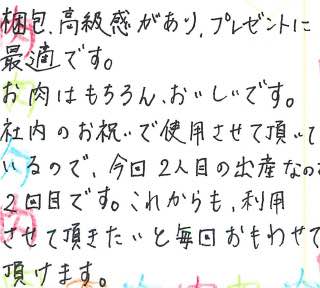 梱包、高級感があり、プレゼントに
最適です。
お肉はもちろん、おいしいです。
社内のお祝いで使用させて頂いて
いるので、今回2人目の出産なので
2回目です。これからも、利用
させて頂きたいと毎回おもわせて
頂けます。